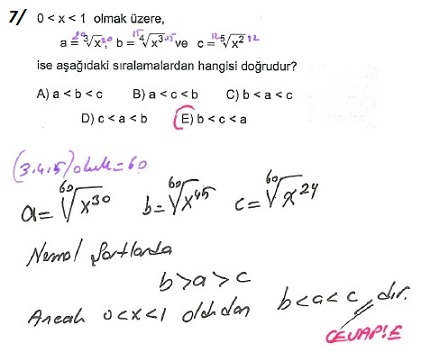 7/ 0 < x < 1 olmak üzere,
a = ³√x, b = ⁴√x³ ve c = ⁵√x²
ise aşağıdaki sıralamalardan hangisi doğrudur?
A) a < b < c B) a < c < b C) b < a < c
D) c < a < b E) b < c < a
(3.4.5) okek = 60
a = ⁶⁰√x³⁰ b = ⁶⁰√x⁴⁵ c = ⁶⁰√x²⁴
Normal Şartlarda
b > a > c
Ancak 0 < x < 1 olduğundan b < a < c dır.
CEVAP: E